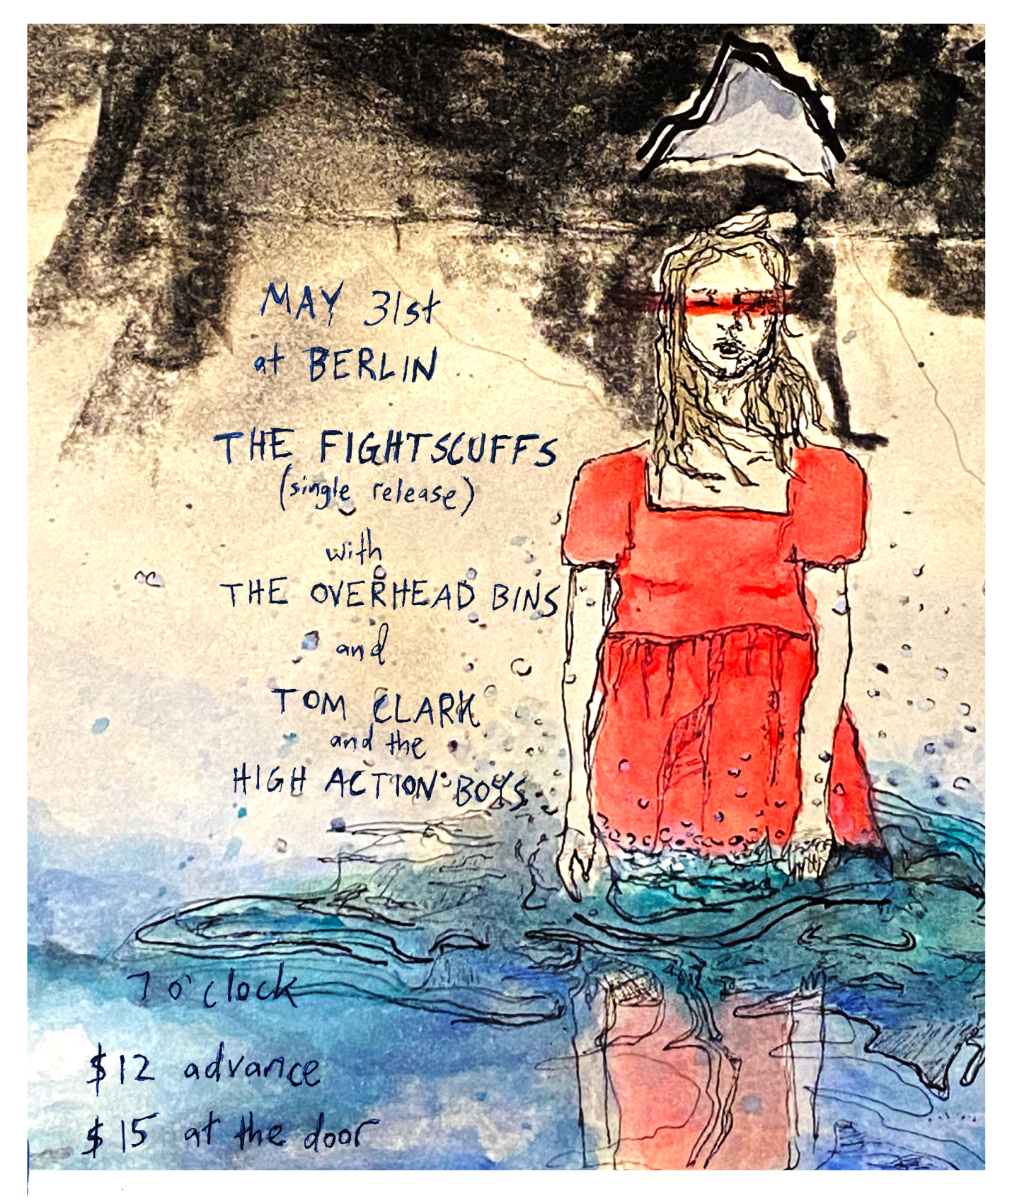 MAY 31st
at BERLIN
THE FIGHTSCUFFS
(single release)
with
THE OVERHEAD BINS
and
TOM CLARK
and the
HIGH ACTION BOYS
7 o'clock
$12 advance
$15 at the door